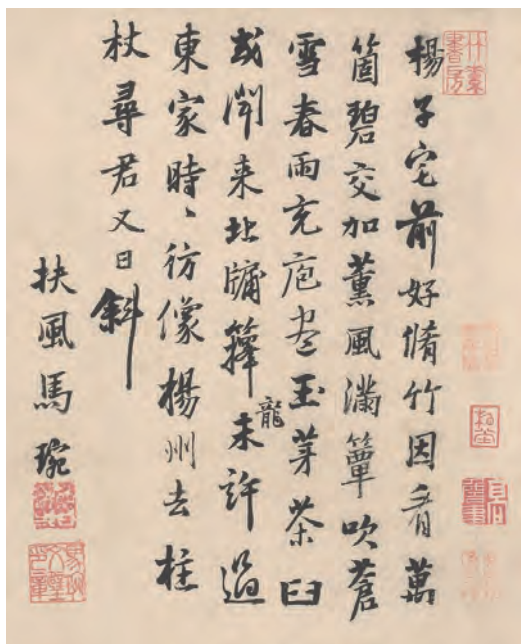 楊子宅前好脩竹因看萬
箇碧交加薰風滿簟吹蒼
雪春雨充庖盡玉芽茶臼
或聞来北牖籜龍未許過
東家時〻彷像楊州去柱
杖尋君又日斜
扶風馬琬